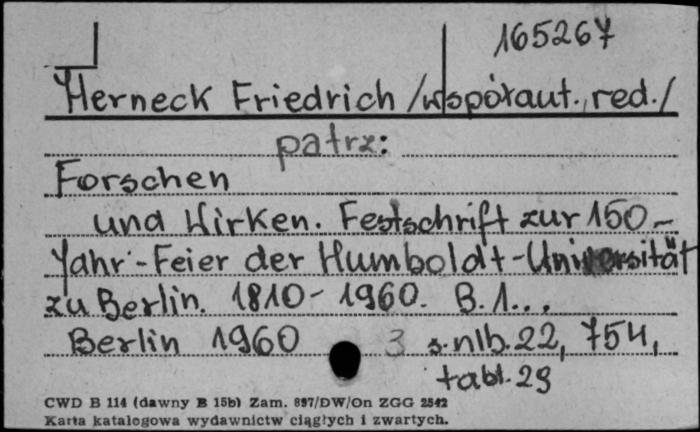 165267
Herneck Friedrich /współaut., red./
patrz:
Forschen
und Wirken. Festschrift zur 150-
Jahr-Feier der Humboldt-Universität
zu Berlin. 1810-1960. B.1...
Berlin 1960 3 s.nlb.22, 754,
tabl. 29
CWD B 114 (dawny B 15b) Zam. 897/DW/On ZGG 2542
Karta katalogowa wydawnictw ciągłych i zwartych.